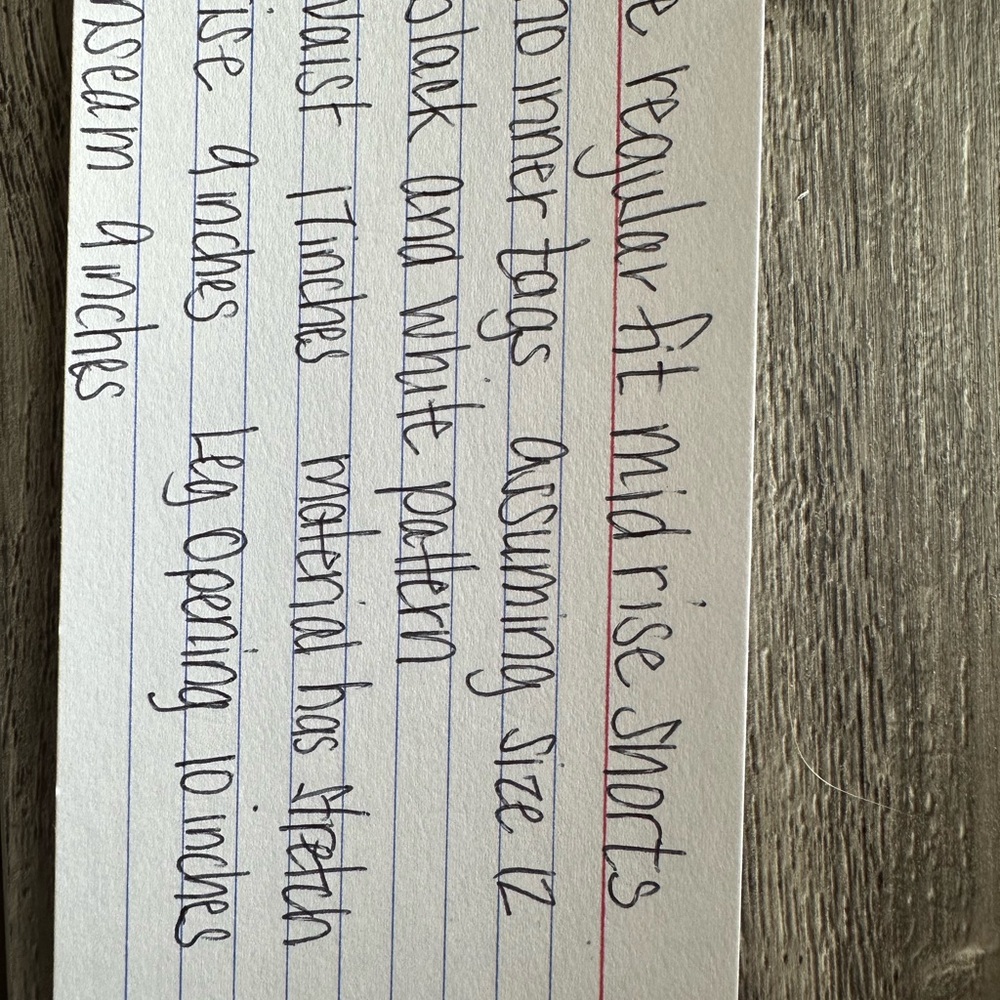 e regular fit mid rise shorts
no inner tags assuming size 12
black and white pattern
Waist 17 inches material has stretch
ise 9 inches Leg Opening 10 inches
nseam 9 inches